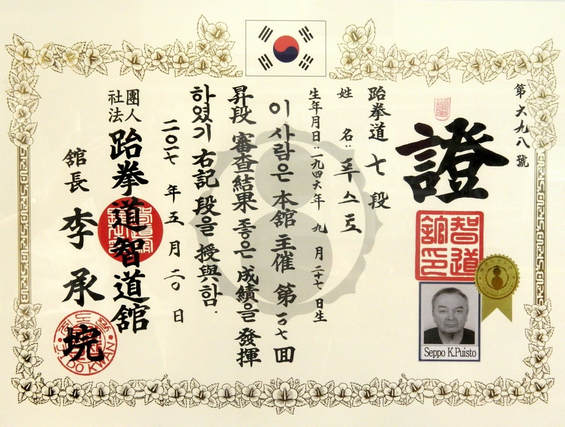 第六九八號
證
智道
舘印
跆拳道 七 段
姓 名 :
生年月日 : 一九四六年 九 月 二十七 日生
이 사람은 本舘 主催 第一〇七 回
昇段 審査結果 좋은 成績을 發揮
하였기 右記 段을 授與함.
二〇〇七 年 五 月 二〇 日
社團法人 跆拳道智道舘
舘長 李承埦
DO KWAN
Seppo K.Puisto